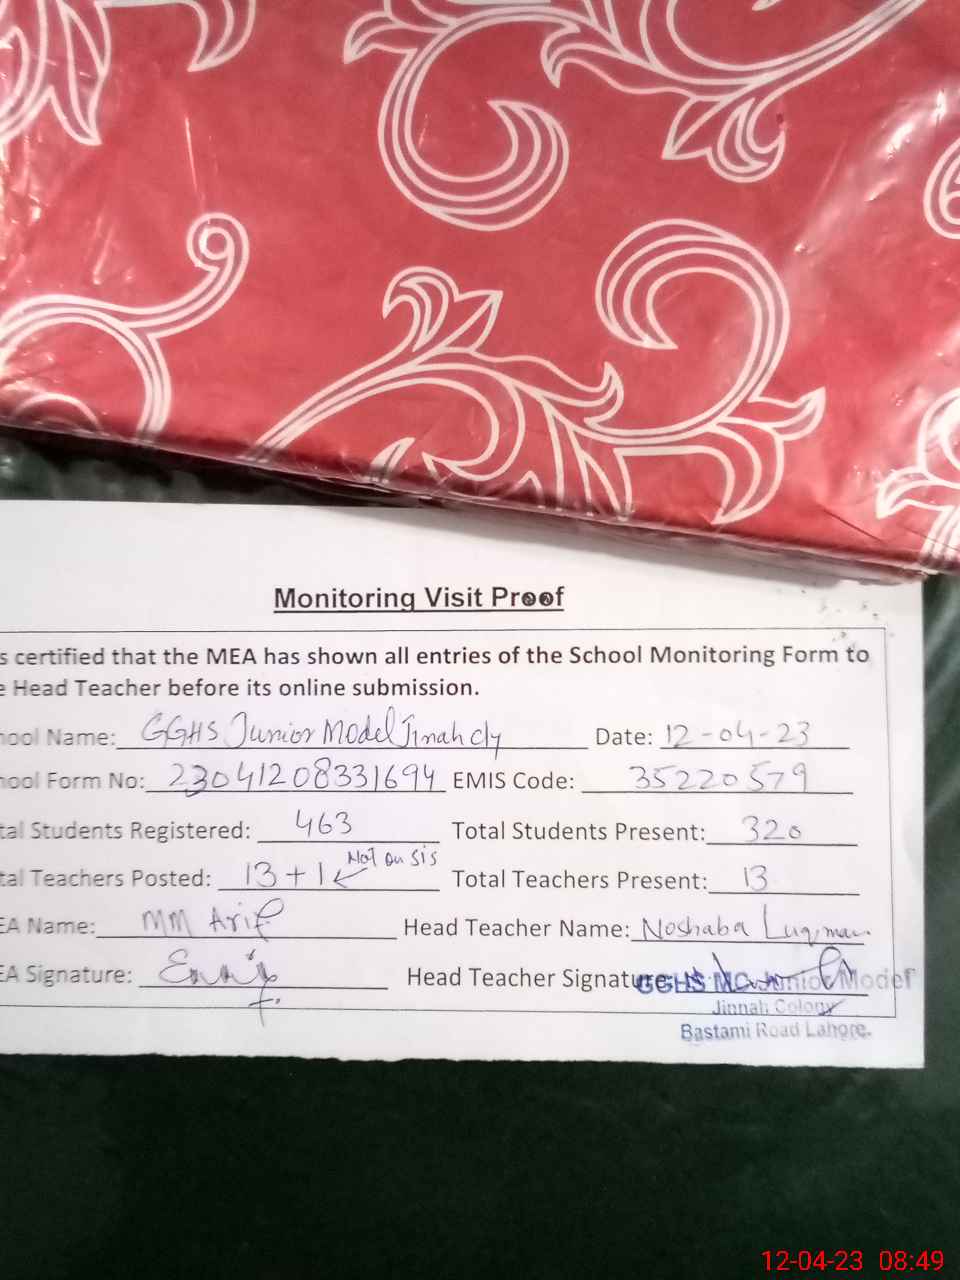 Monitoring Visit Proof
s certified that the MEA has shown all entries of the School Monitoring Form to
e Head Teacher before its online submission.
hool Name: GGHS Junior Model Jinah cly Date: 12-04-23
hool Form No: 23041208331694 EMIS Code: 35220579
tal Students Registered: 463 Total Students Present: 320
Not on SIS
tal Teachers Posted: 13+1 Total Teachers Present: 13
EA Name: MM Arif Head Teacher Name: Noshaba Luqman
EA Signature: Head Teacher Signature:
GGHS MC Junior Model
Jinnah Colony
Bastami Road Lahore.
12-04-23 08:49